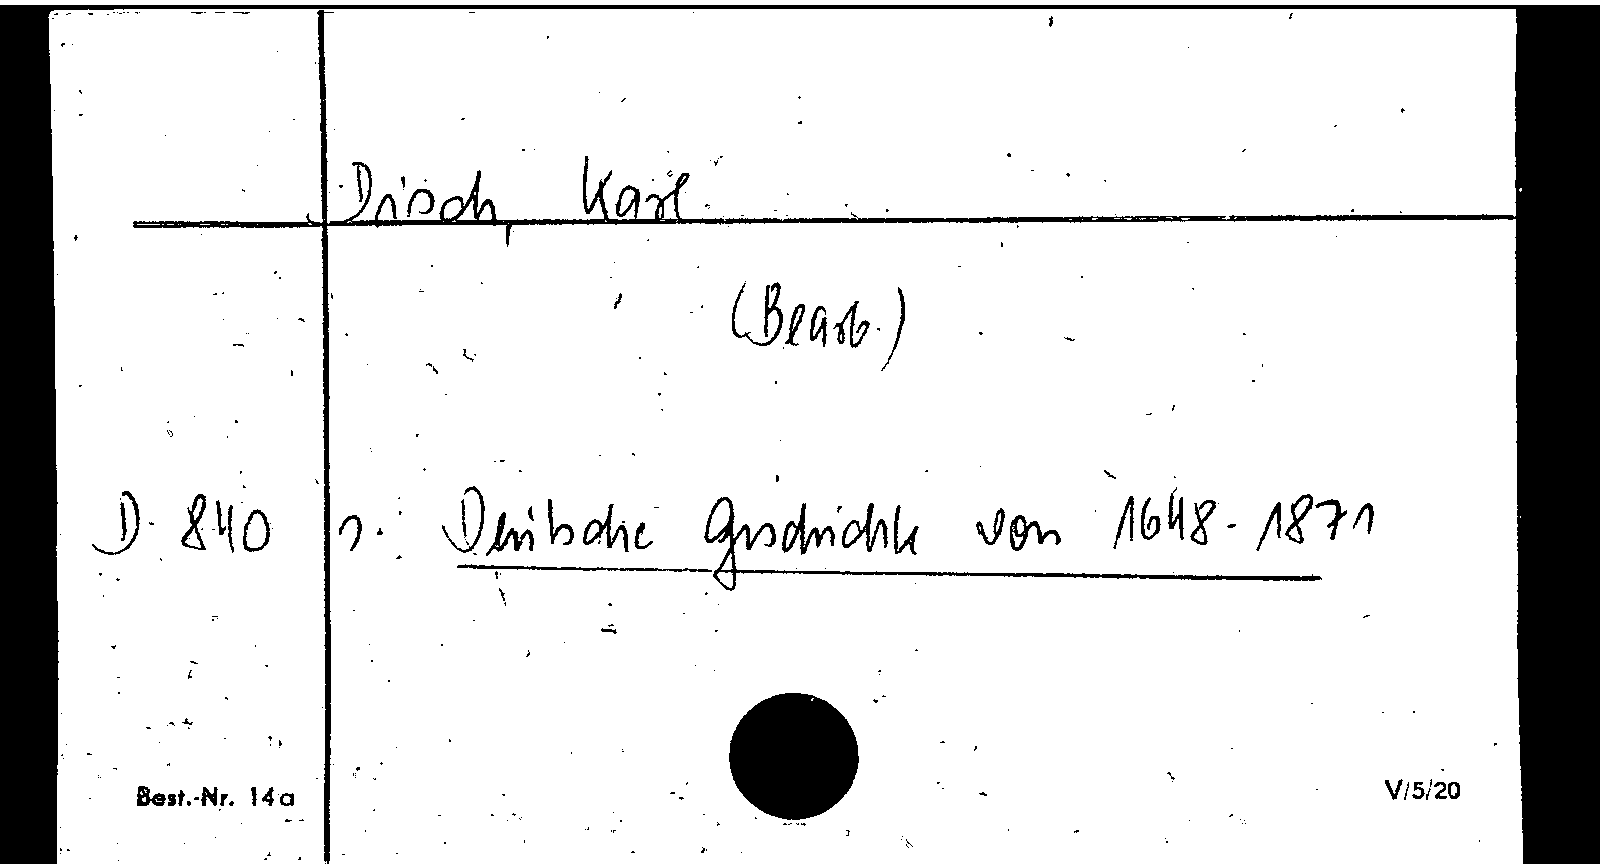 Disch, Karl
(Bearb.)
D 840 s. Deutsche Geschichte von 1648-1871
Best.-Nr. 14a
V/5/20